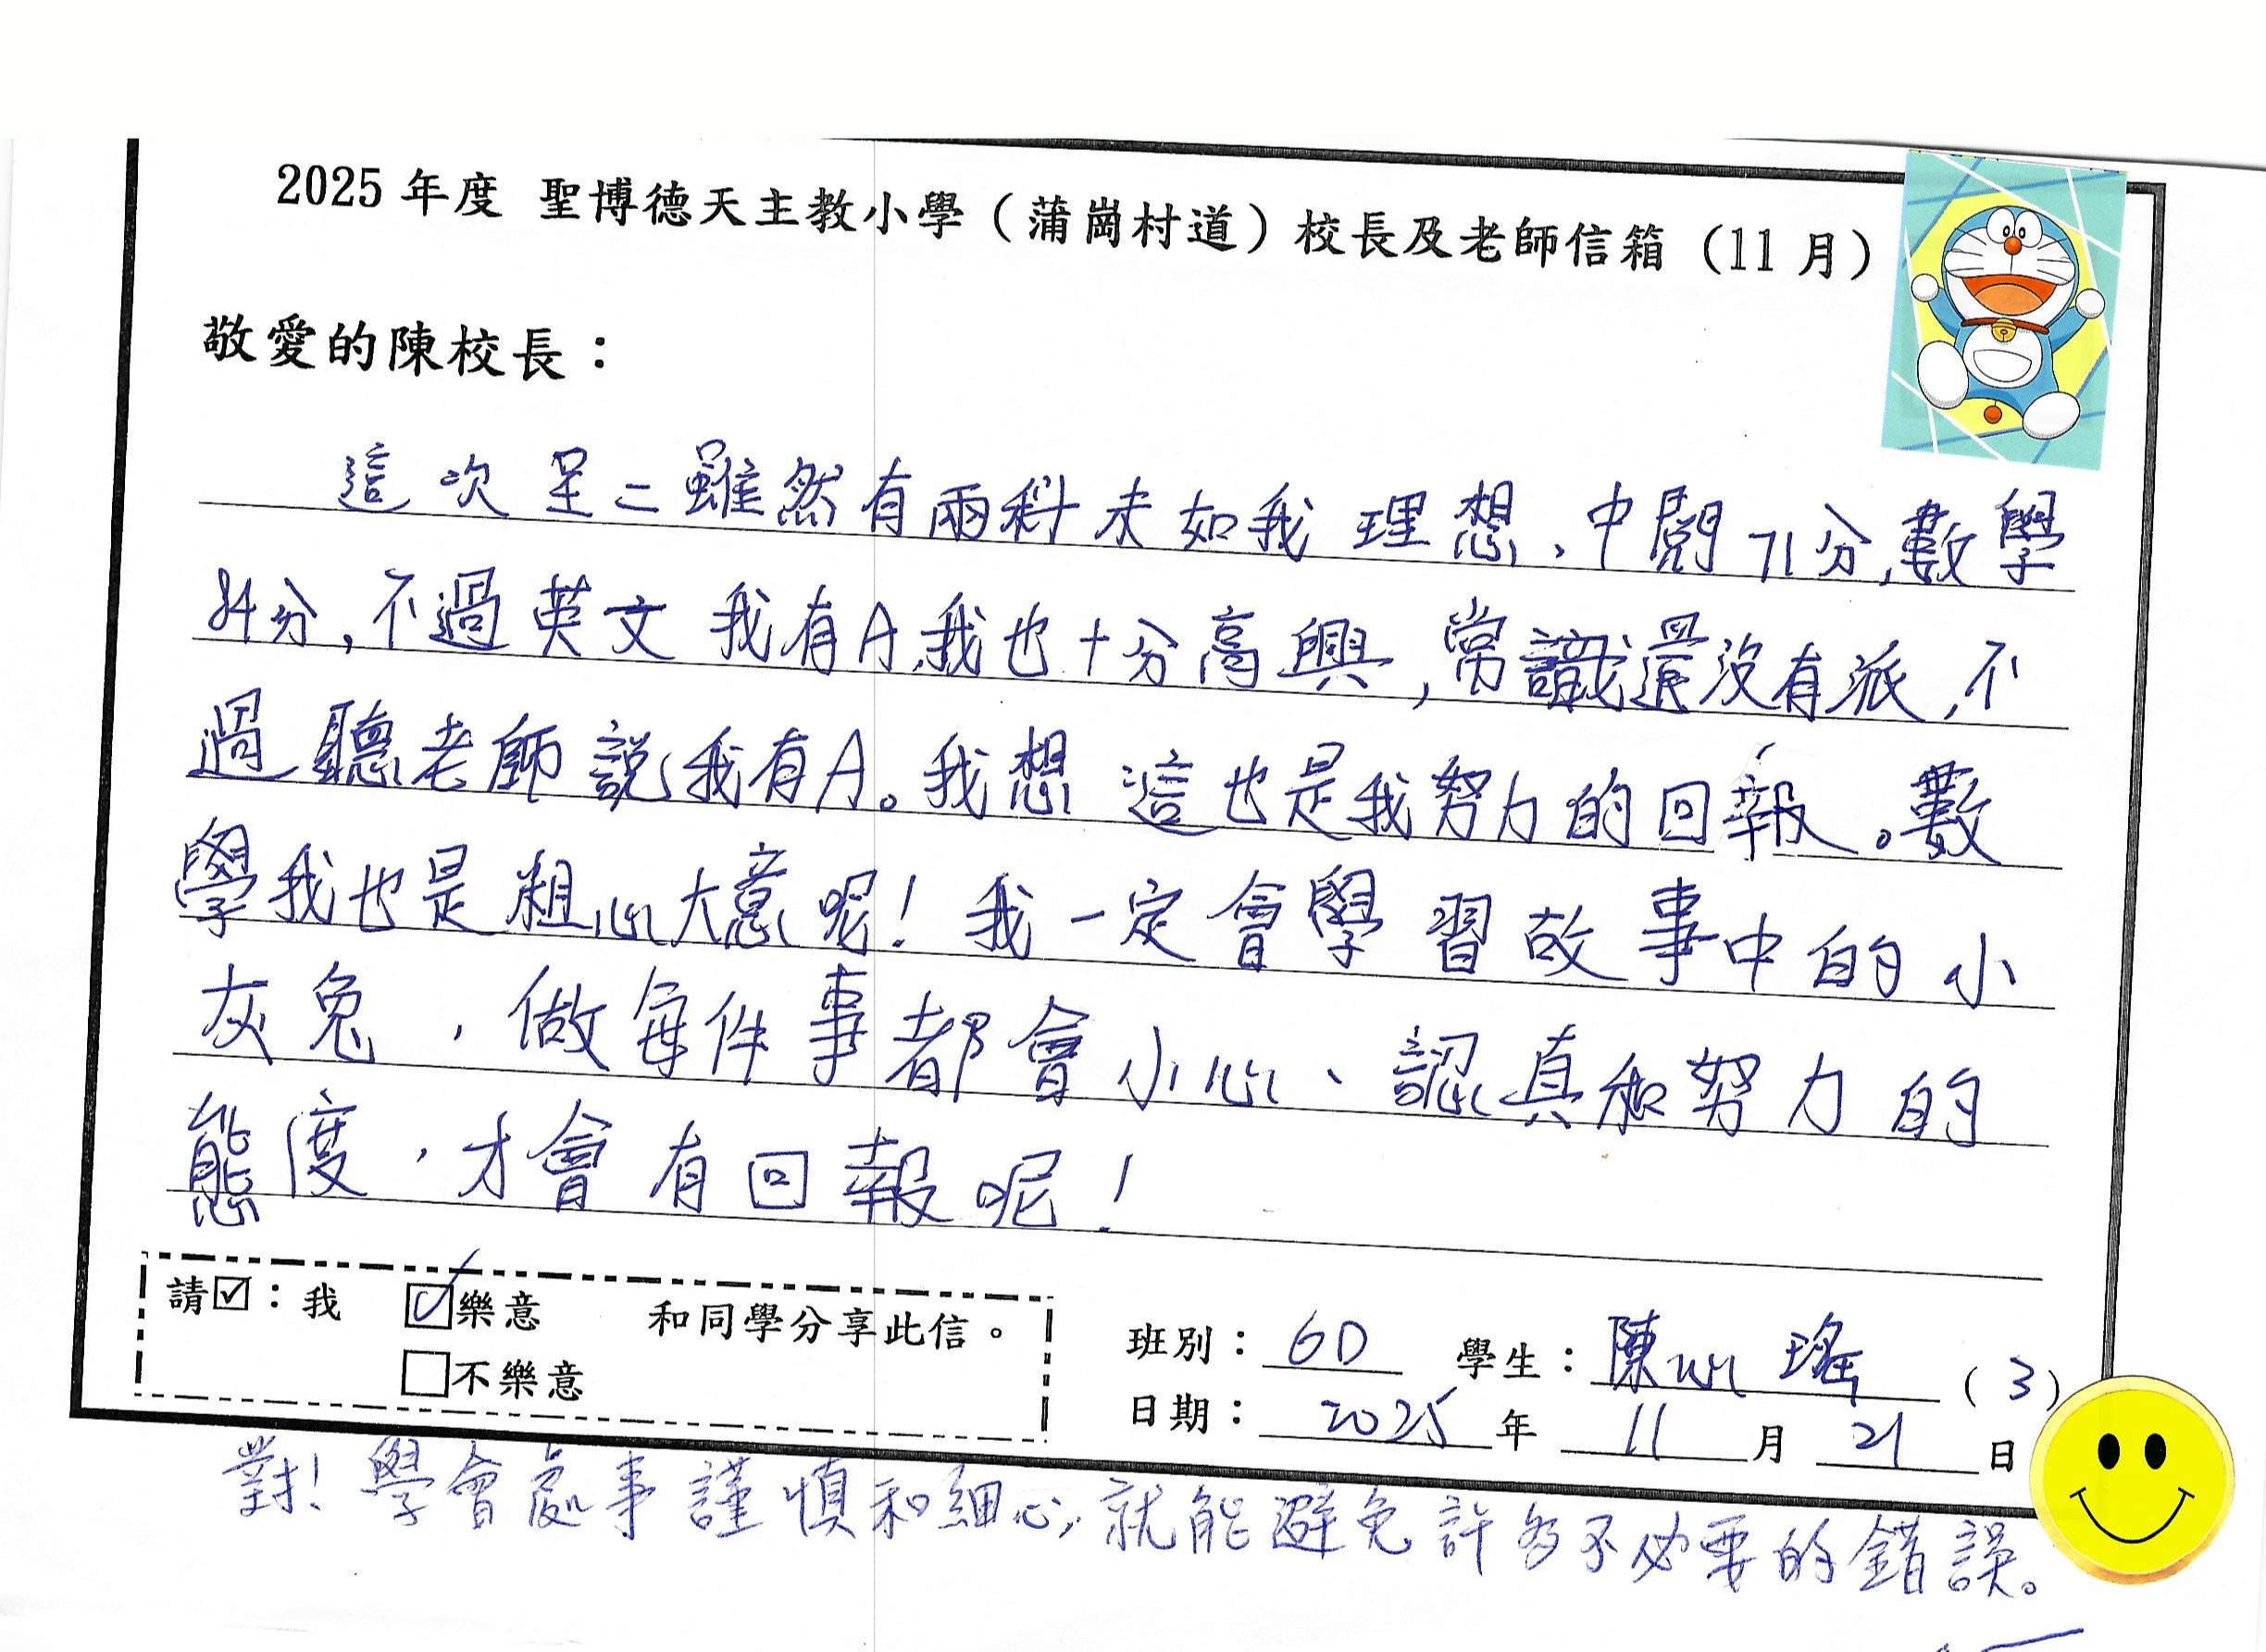 2025 年度 聖博德天主教小學（蒲崗村道）校長及老師信箱（11 月）
敬愛的陳校長：
這次呈二雖然有兩科未如我理想、中閱71分,數學
84分,不過英文我有A,我也十分高興,常識還沒有派,不
過聽老師說我有A。我想這也是我努力的回報。數
學我也是粗心大意呢！我一定會學習故事中的小
灰兔，做每件事都會小心、認真和努力的
態度，才會有回報呢！
請☑：我 ☑樂意 和同學分享此信。
□不樂意
班別：6D 學生：陳心瑤（3）
日期：2025年11月21日
對！學會處事謹慎和細心,就能避免許多不必要的錯誤。